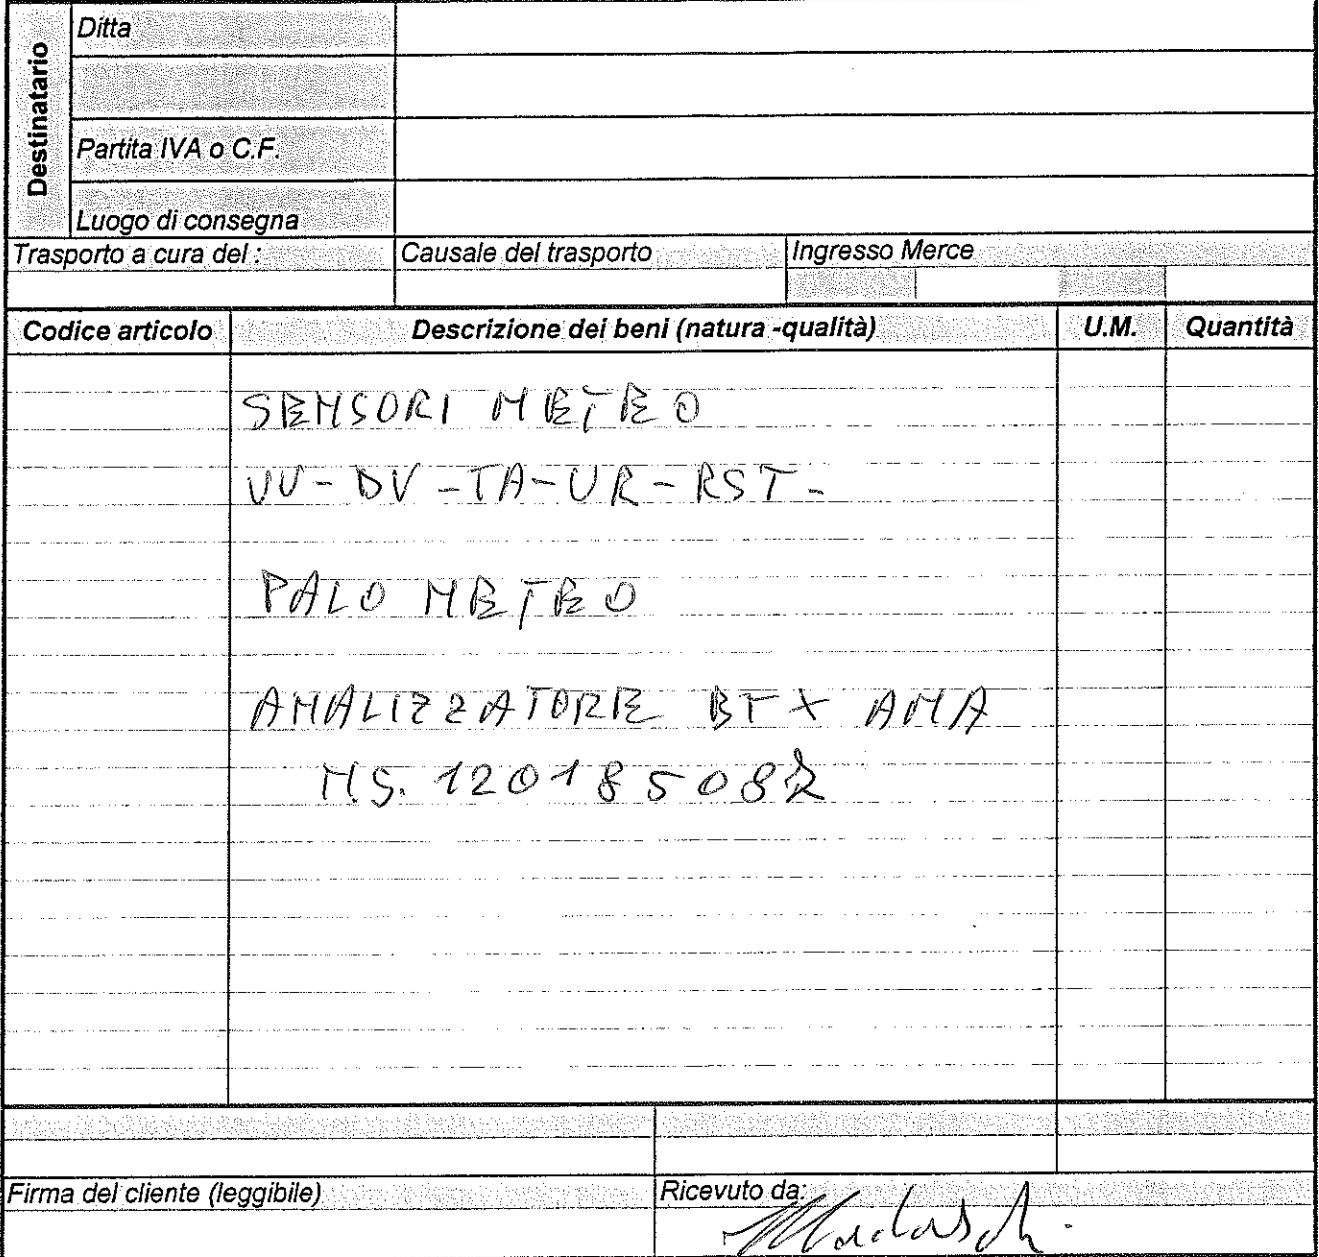 Destinatario
Ditta
Partita IVA o C.F.
Luogo di consegna
Trasporto a cura del : Causale del trasporto Ingresso Merce
Codice articolo Descrizione dei beni (natura -qualità) U.M. Quantità
SENSORI METEO
VV - DV - TA - UR - RST -
PALO METEO
ANALIZZATORE BTX AMA
Firma del cliente (leggibile) Ricevuto da: